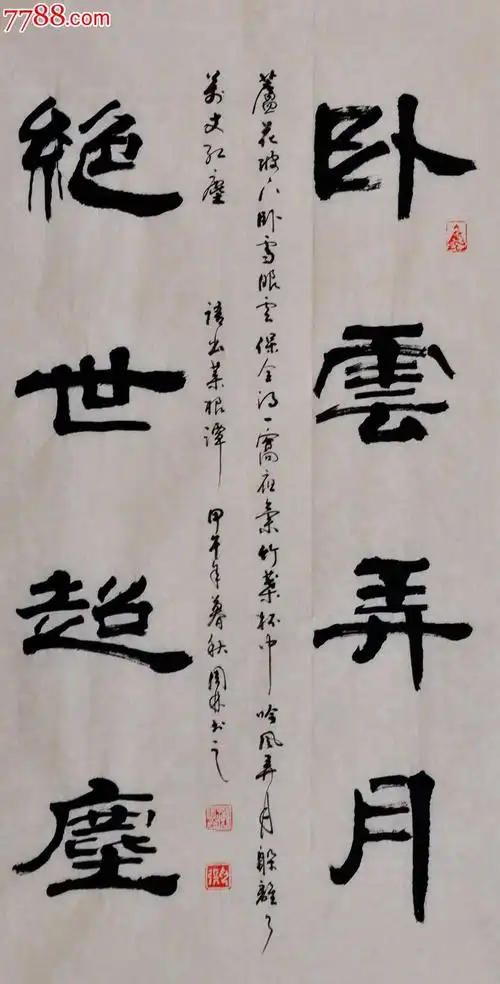 7788.com
卧雲弄月
蘆花被下卧雪眠雲保全得一窩夜氣竹葉杯中吟風弄月躲離了
萬丈紅塵 語出菜根譚 甲午年暮秋
絶世超塵